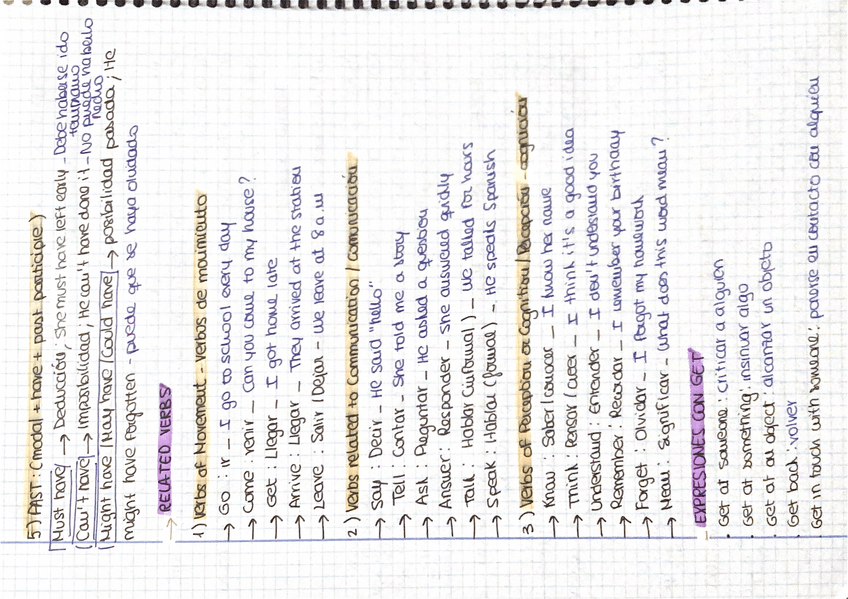 5) PAST: (modal + have + past participle)
Must have → Deducción; She must have left early - Debe haberse ido temprano
Can't have → Imposibilidad; He can't have done it - No puede haberlo hecho
Might have / May have / Could have → posibilidad pasada; He
might have forgotten - puede que se haya olvidado
→ RELATED VERBS
1) Verbs of Movement - Verbos de movimiento
→ Go: ir - I go to school every day
→ Come: venir - Can you come to my house?
→ Get: Llegar - I got home late
→ Arrive: Llegar - They arrived at the station
→ Leave: Salir / Dejar - We leave at 8 a.m
2) Verbs related to Communication / comunicación
→ Say: Decir - He said "hello"
→ Tell: Contar - She told me a story
→ Ask: Preguntar - He asked a question
→ Answer: Responder - She answered quickly
→ Talk: Hablar (informal) - We talked for hours
→ Speak: Hablar (formal) - He speaks Spanish
3) Verbs of Perception or Cognition / Percepción - cognición
→ Know: Saber / conocer - I know her name
→ Think: Pensar / creer - I think it's a good idea
→ Understand: Entender - I don't understand you
→ Remember: Recordar - I remember your birthday
→ Forget: Olvidar - I forgot my homework
→ Mean: Significar - What does this word mean?
- EXPRESIONES CON GET
· Get at someone: criticar a alguien
· Get at something: insinuar algo
· Get at an object: alcanzar un objeto
· Get back: volver
· Get in touch with someone: ponerse en contacto con alguien